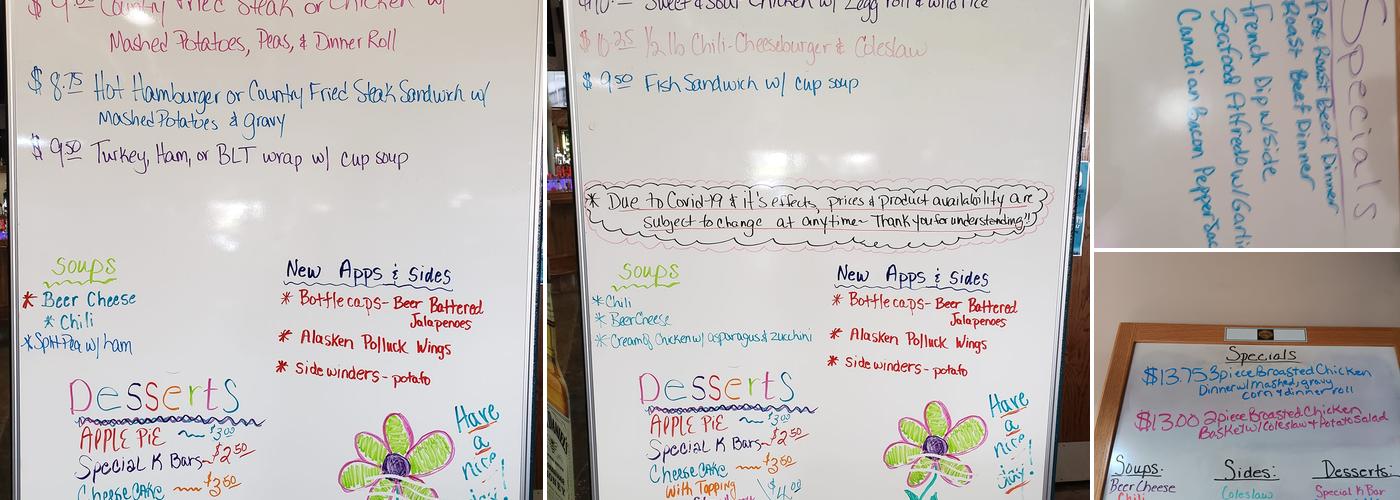 Country Fried Steak or Chicken w/
Mashed Potatoes, Peas, & Dinner Roll
$8.75 Hot Hamburger or Country Fried Steak Sandwich w/
Mashed Potatoes & gravy
$9.50 Turkey, Ham, or BLT wrap w/ cup soup
Soups
* Beer Cheese
* Chili
* Split Pea w/ ham
New Apps & Sides
* Bottle caps - Beer Battered
Jalapenoes
* Alasken Polluck Wings
* side winders - potato
Desserts
APPLE PIE $3.00
Special K Bars $2.50
Cheese CAKE $3.50
Have
a
nice
Sweet & Sour Chicken w/ 2 egg roll & wild rice
$10.25 1/2 lb Chili-Cheeseburger & Coleslaw
$9.50 Fish Sandwich w/ cup soup
* Due to Covid-19 & it's effects, prices & product availability are
subject to change at anytime~ Thank you for understanding!!
Soups
* Chili
* Beer Cheese
* Cream of Chicken w/ asparagus & zucchini
New Apps & Sides
* Bottle caps - Beer Battered
Jalapenoes
* Alasken Polluck Wings
* side winders - potato
Desserts
APPLE PIE $3.00
Special K Bars $2.50
Cheese CAKE $3.50
With Topping $4.00
Have
a
nice
Specials
Roast Beef Dinner
Roast Beef Dinner
French Dip w/ Side
Seafood Alfredo w/
Canadian Bacon Pepper Jac
Specials
$13.75 3 piece Broasted Chicken
Dinner w/ mashed, gravy
corn & dinner roll
$13.00 2 piece Broasted Chicken
Basket w/ Coleslaw + Potato Salad
Soups:
Beer Cheese
Chili
Sides:
Coleslaw
Desserts:
Special K Bar